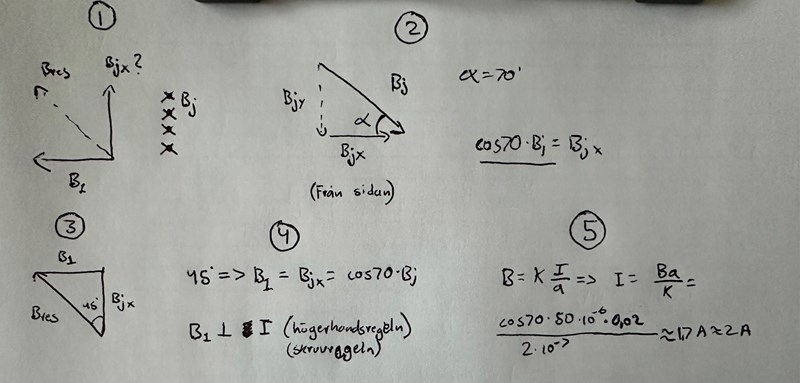 ①
Bres
Bjx?
Bj
B₁
②
Bj
Bjy
α
Bjx
(Från sidan)
α = 70°
cos70·Bj = Bjx
③
B₁
Bres
45°
Bjx
④
45° => B₁ = Bjx = cos70·Bj
B₁ ⊥ I (högerhandsregeln)
(skruvregeln)
⑤
B = K I/a => I = Ba/K =
cos70·50·10⁻⁶·0,02 / 2·10⁻⁷ ≈ 1,7 A ≈ 2A